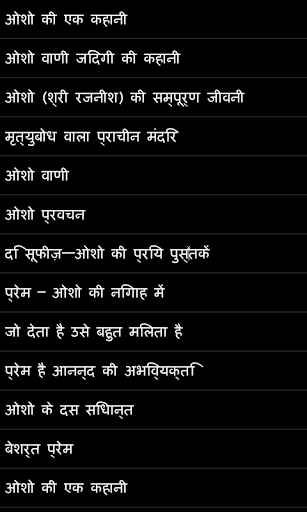 ओशो की एक कहानी
ओशो वाणी जिंदगी की कहानी
ओशो (श्री रजनीश) की सम्पूर्ण जीवनी
मृत्युबोध वाला प्राचीन मंदिर
ओशो वाणी
ओशो प्रवचन
दि सूफीज़—ओशो की प्रिय पुस्तकें
प्रेम – ओशो की निगाह में
जो देता है उसे बहुत मिलता है
प्रेम है आनन्द की अभिव्यक्ति
ओशो के दस सिधान्त
बेशर्त प्रेम
ओशो की एक कहानी